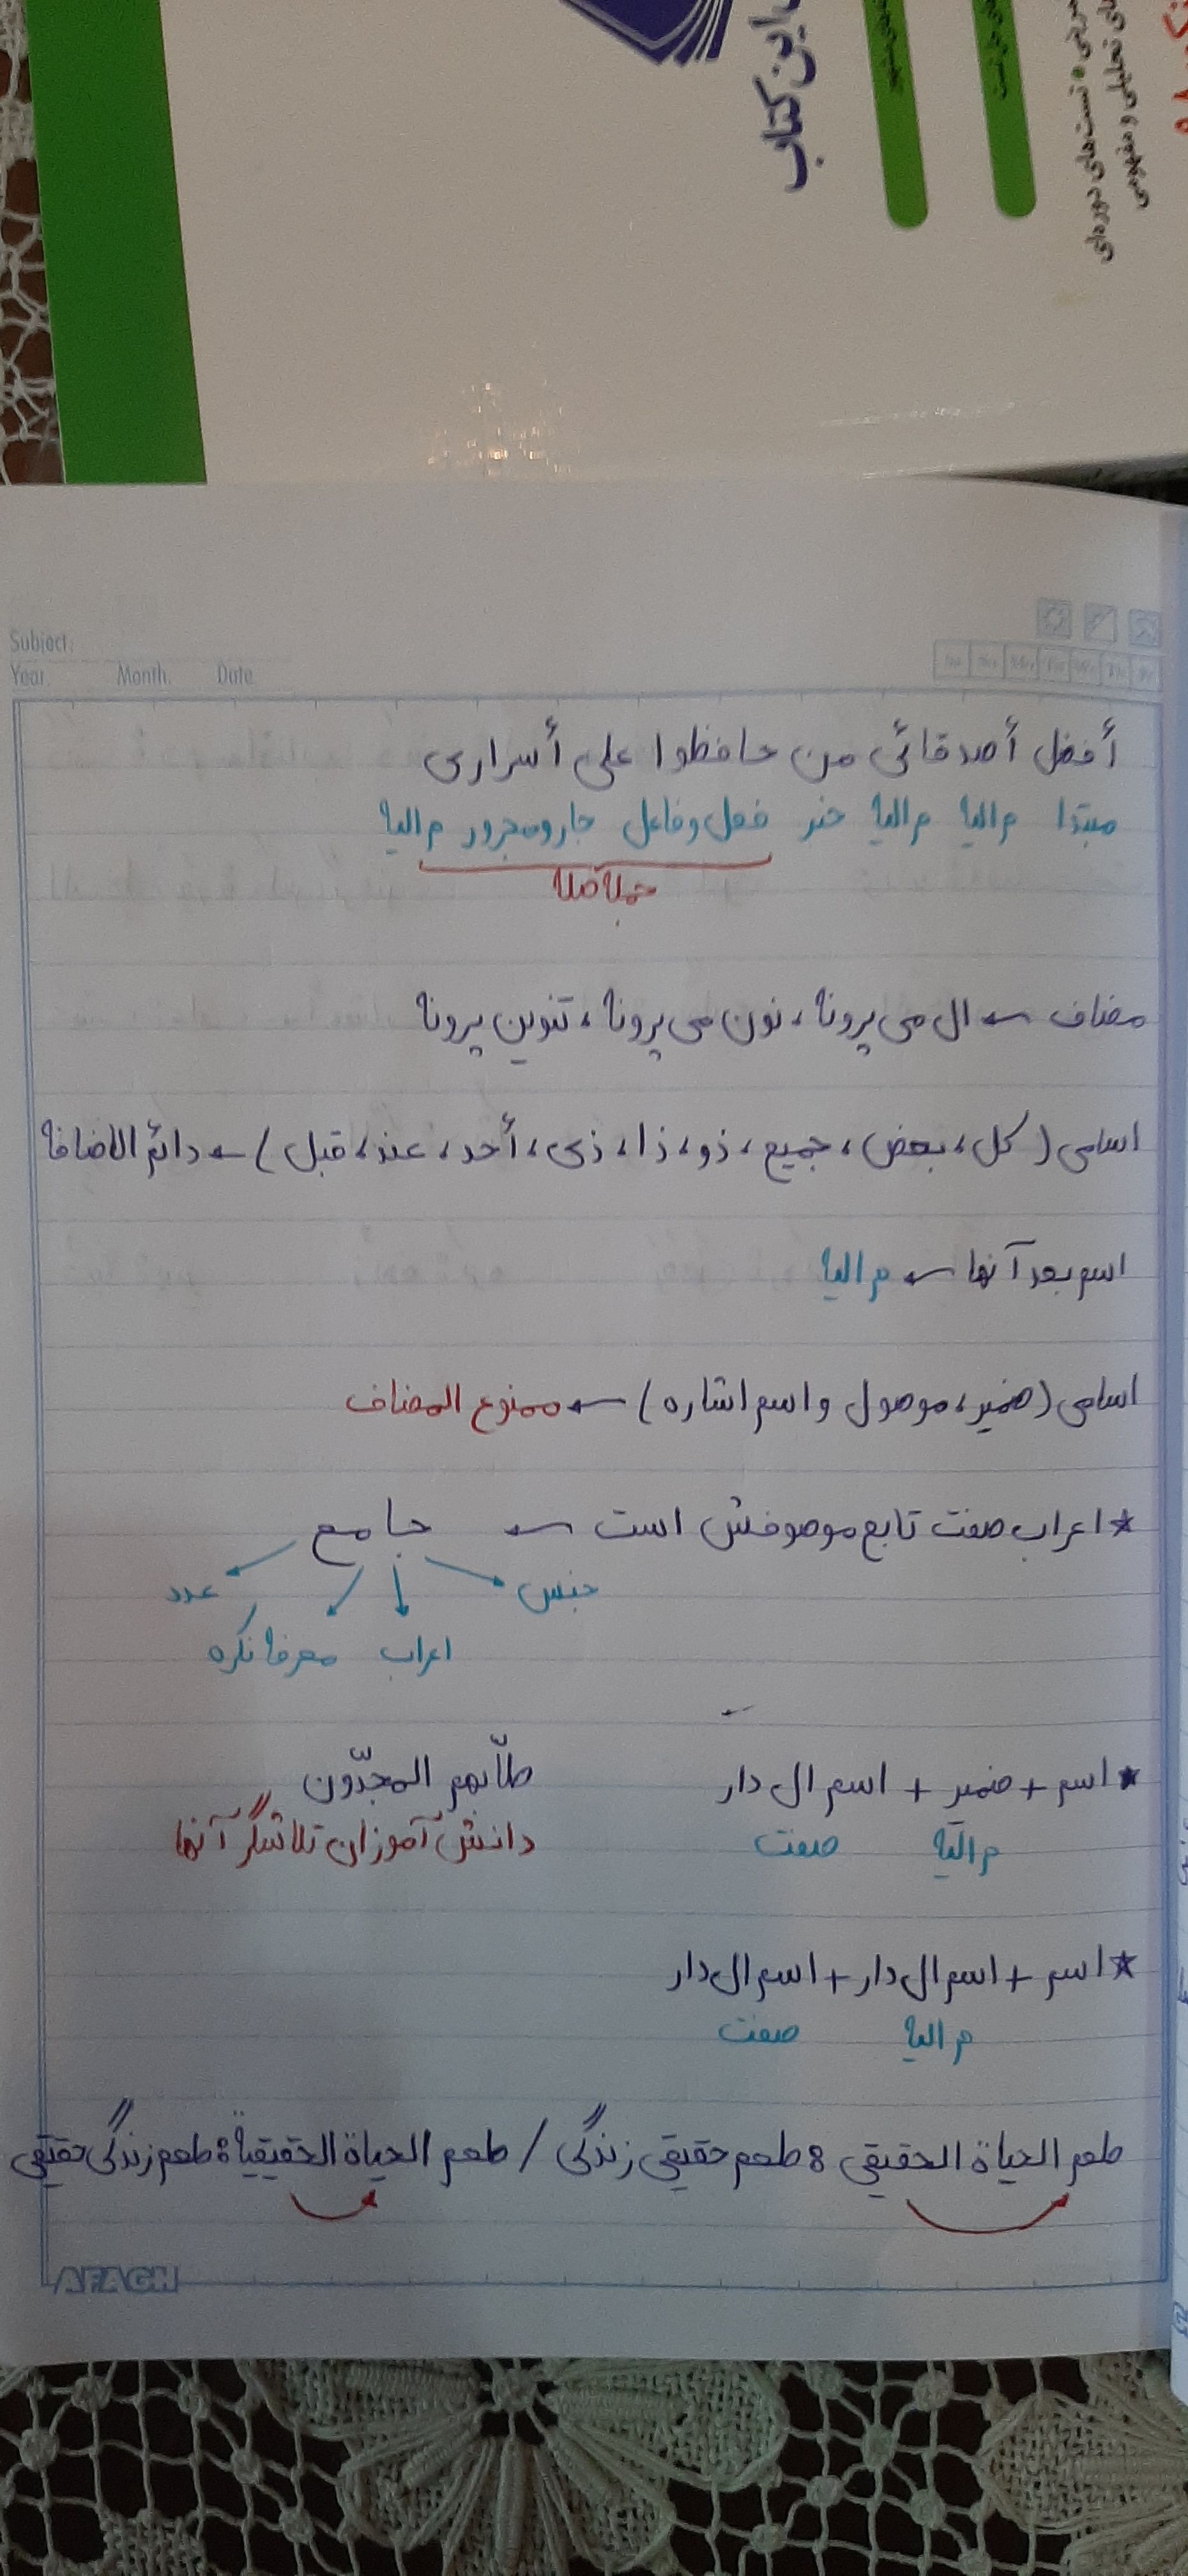 این کتاب
تست‌های دوره‌ای
های تحلیلی و مفهومی
Subject:
Year. Month. Date.
أفضل أصدقائی من حافظوا علی أسراری
مبتدا م الیه م الیه خبر فعل و فاعل جارومجرور م الیه
جمله صله
مضاف ← ال می پرونه ، نون می پرونه ، تنوین پرونه
اسامی (کل ، بعض ، جمیع ، ذو ، ذا ، ذی ، أحد ، عند ، قبل) ← دائم الاضافه
اسم بعد آنها ← م الیه
اسامی (ضمیر ، موصول و اسم اشاره) ← ممنوع المضاف
* اعراب صفت تابع موصوفش است ← جامع
جنس عدد
اعراب معرفه نکره
* اسم + ضمیر + اسم ال دار طلّابهم المجدّون
م الیه صفت دانش آموزان تلاشگر آنها
* اسم + اسم ال دار + اسم ال دار
م الیه صفت
طعم الحیاة الحقیقی : طعم حقیقی زندگی / طعم الحیاة الحقیقیة : طعم زندگی حقیقی
AFAGH